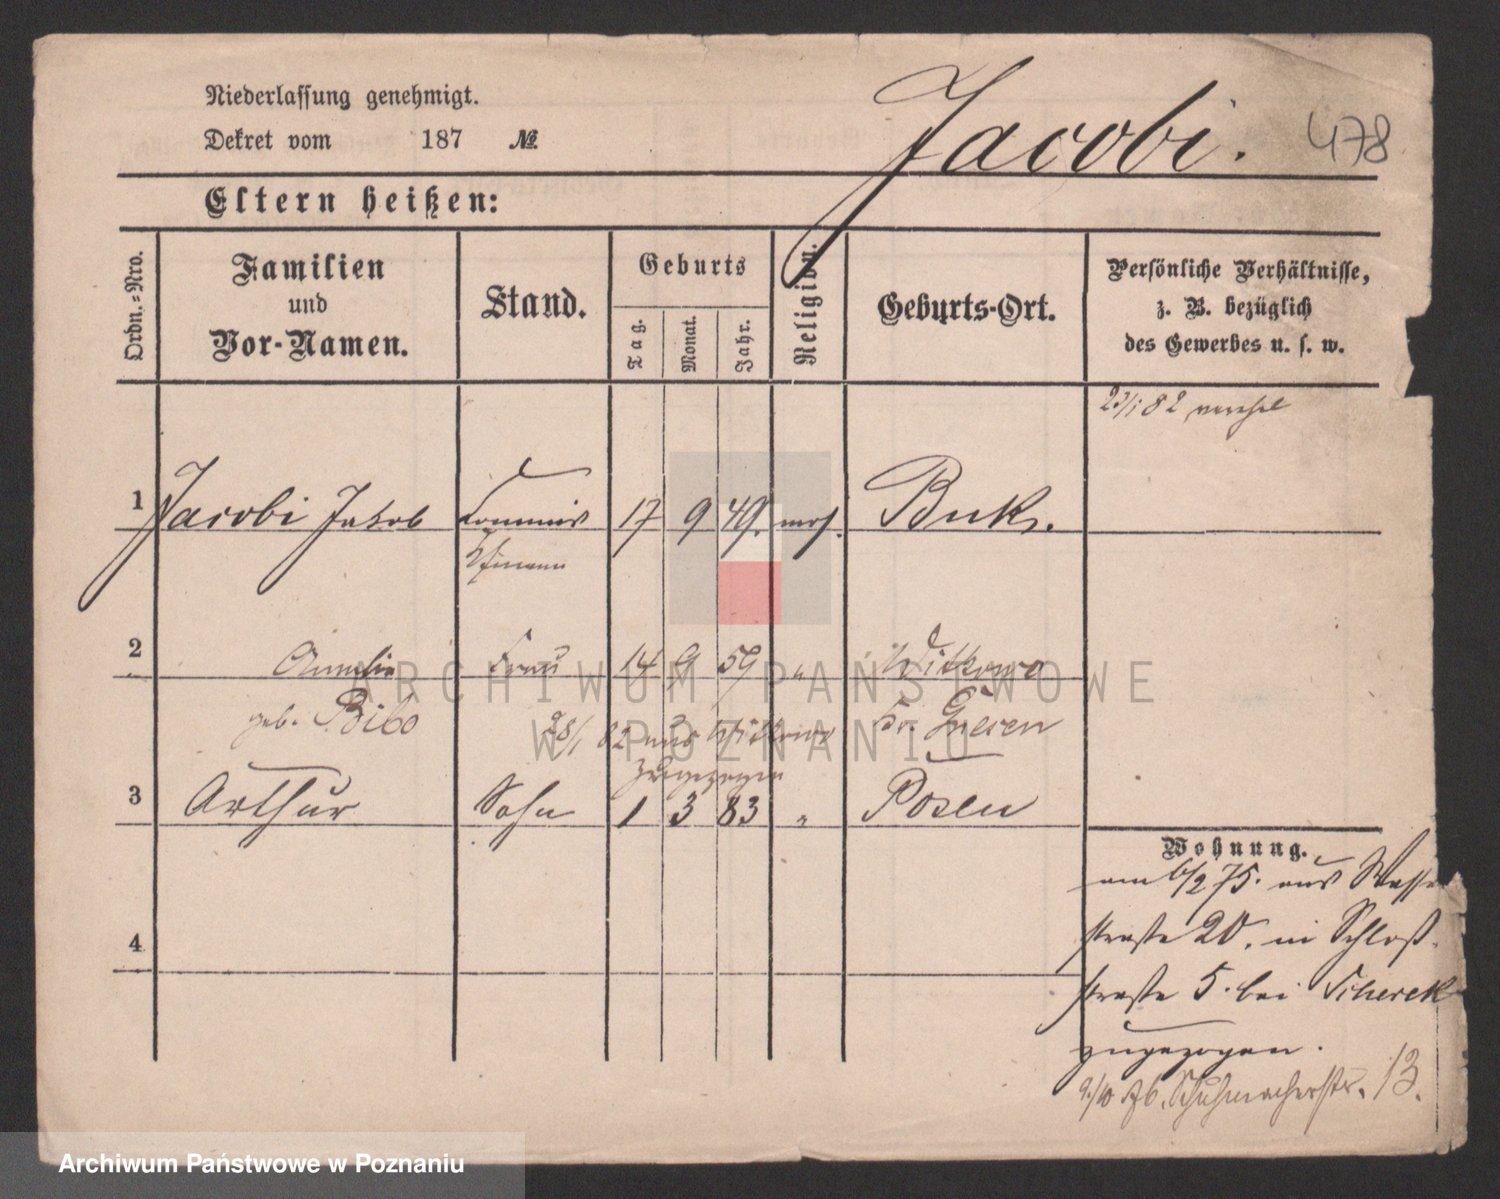 Niederlassung genehmigt.
Dekret vom 187 №
Jacobi. 478
Eltern heißen:
Ordn.-Nro.
Familien und Vor-Namen.
Stand.
Geburts
Tag. Monat. Jahr.
Religion.
Geburts-Ort.
Persönliche Verhältnisse,
z. B. bezüglich
des Gewerbes u. s. w.
23/1 82
1 Jacobi Jakob Commis 17 9 49. mos. Buk.
Ehemann
2 Amalie Frau 14 9 59 " Witkowo
geb. Bibo Kr. Gnesen
28/1 82 aus Witkowo
zugezogen
3 Arthur Sohn 1 3 83 " Posen
4
Wohnung.
am 6/2 75. aus Wasser
straße 20. in Schloß-
straße 5. bei Scherek
zugezogen.
9/10 76. Schuhmacherstr. 13.
ARCHIWUM PAŃSTWOWE
W POZNANIU
Archiwum Państwowe w Poznaniu